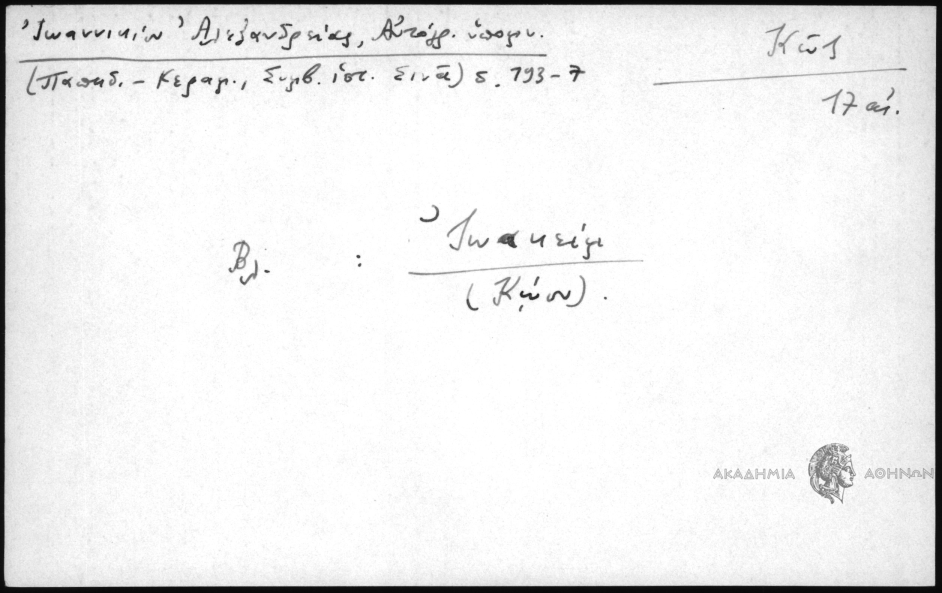 Ἰωαννικίου Ἀλεξανδρείας, Αὐτόγρ. ὑπομν.
(Παπαδ.-Κεραμ., Συμβ. ἱστ. Σινᾶ) σ. 193-7
Κῶς
17 αἰ.
Βλ. : Ἰωακείμ
(Κῴου).
ΑΚΑΔΗΜΙΑ ΑΘΗΝΩΝ